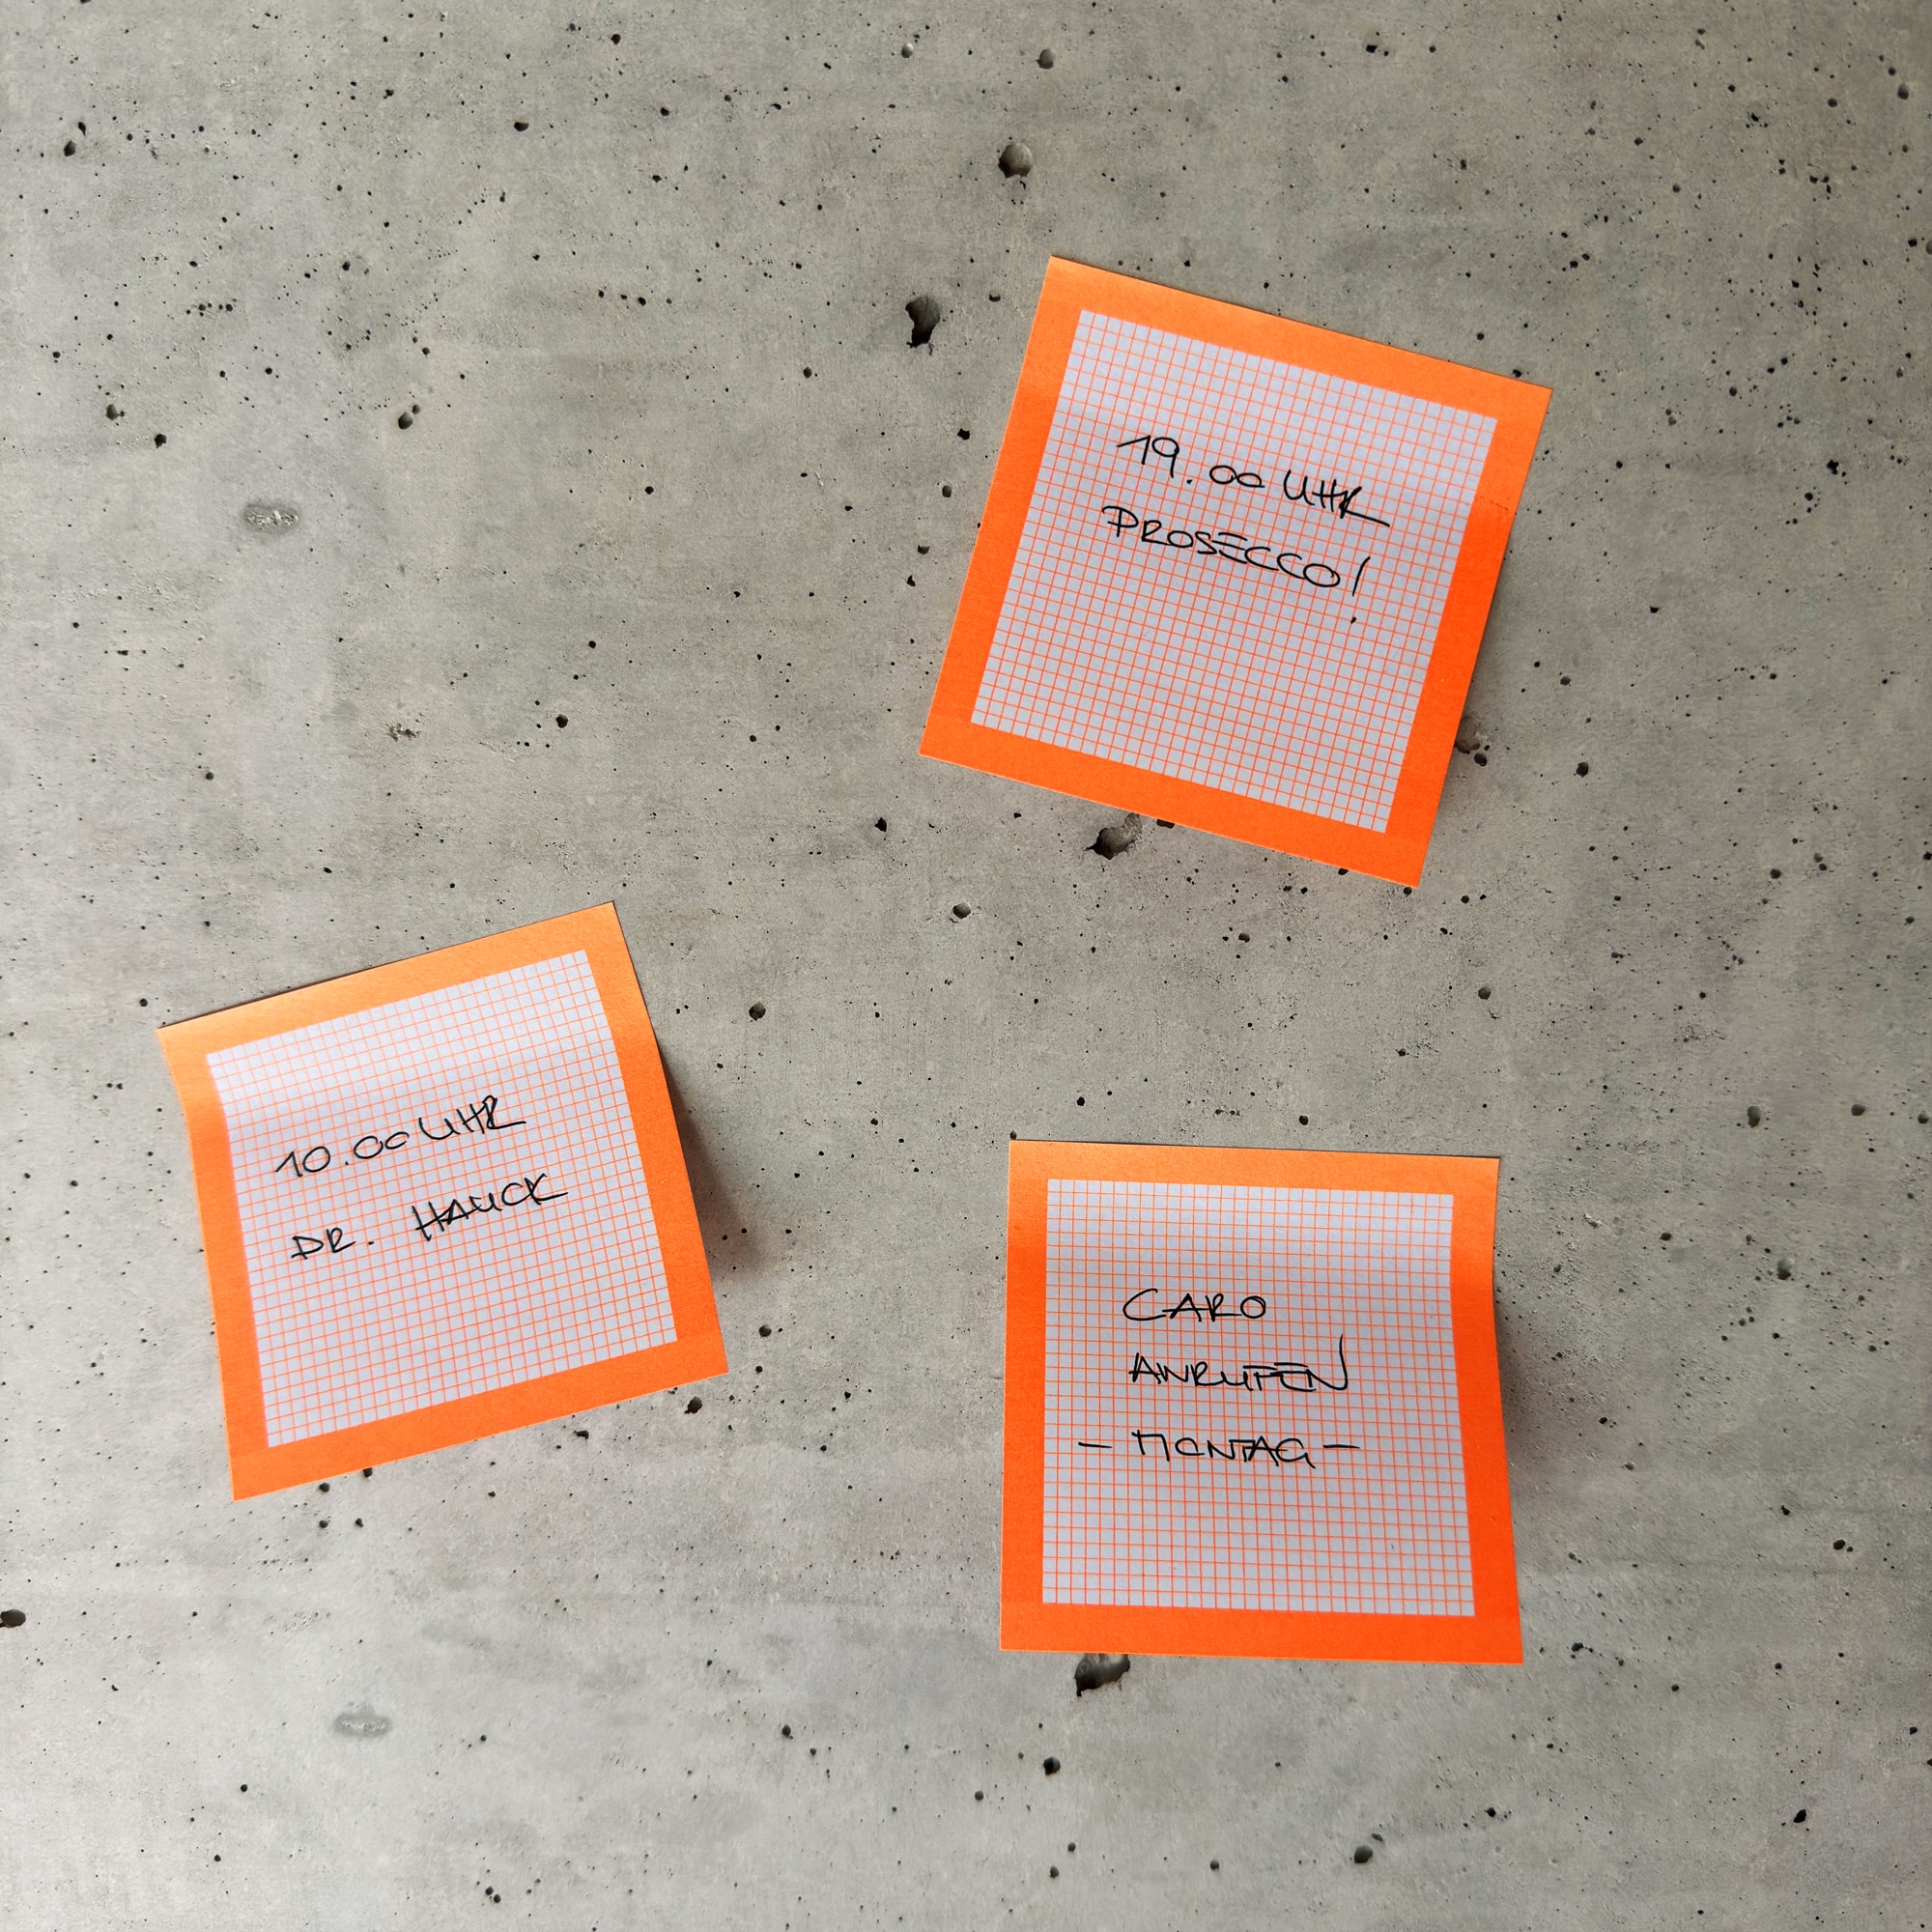 19.00 UHR
PROSECCO!
10.00 UHR
DR. HAUCK
CARO
ANRUFEN
- MONTAG -